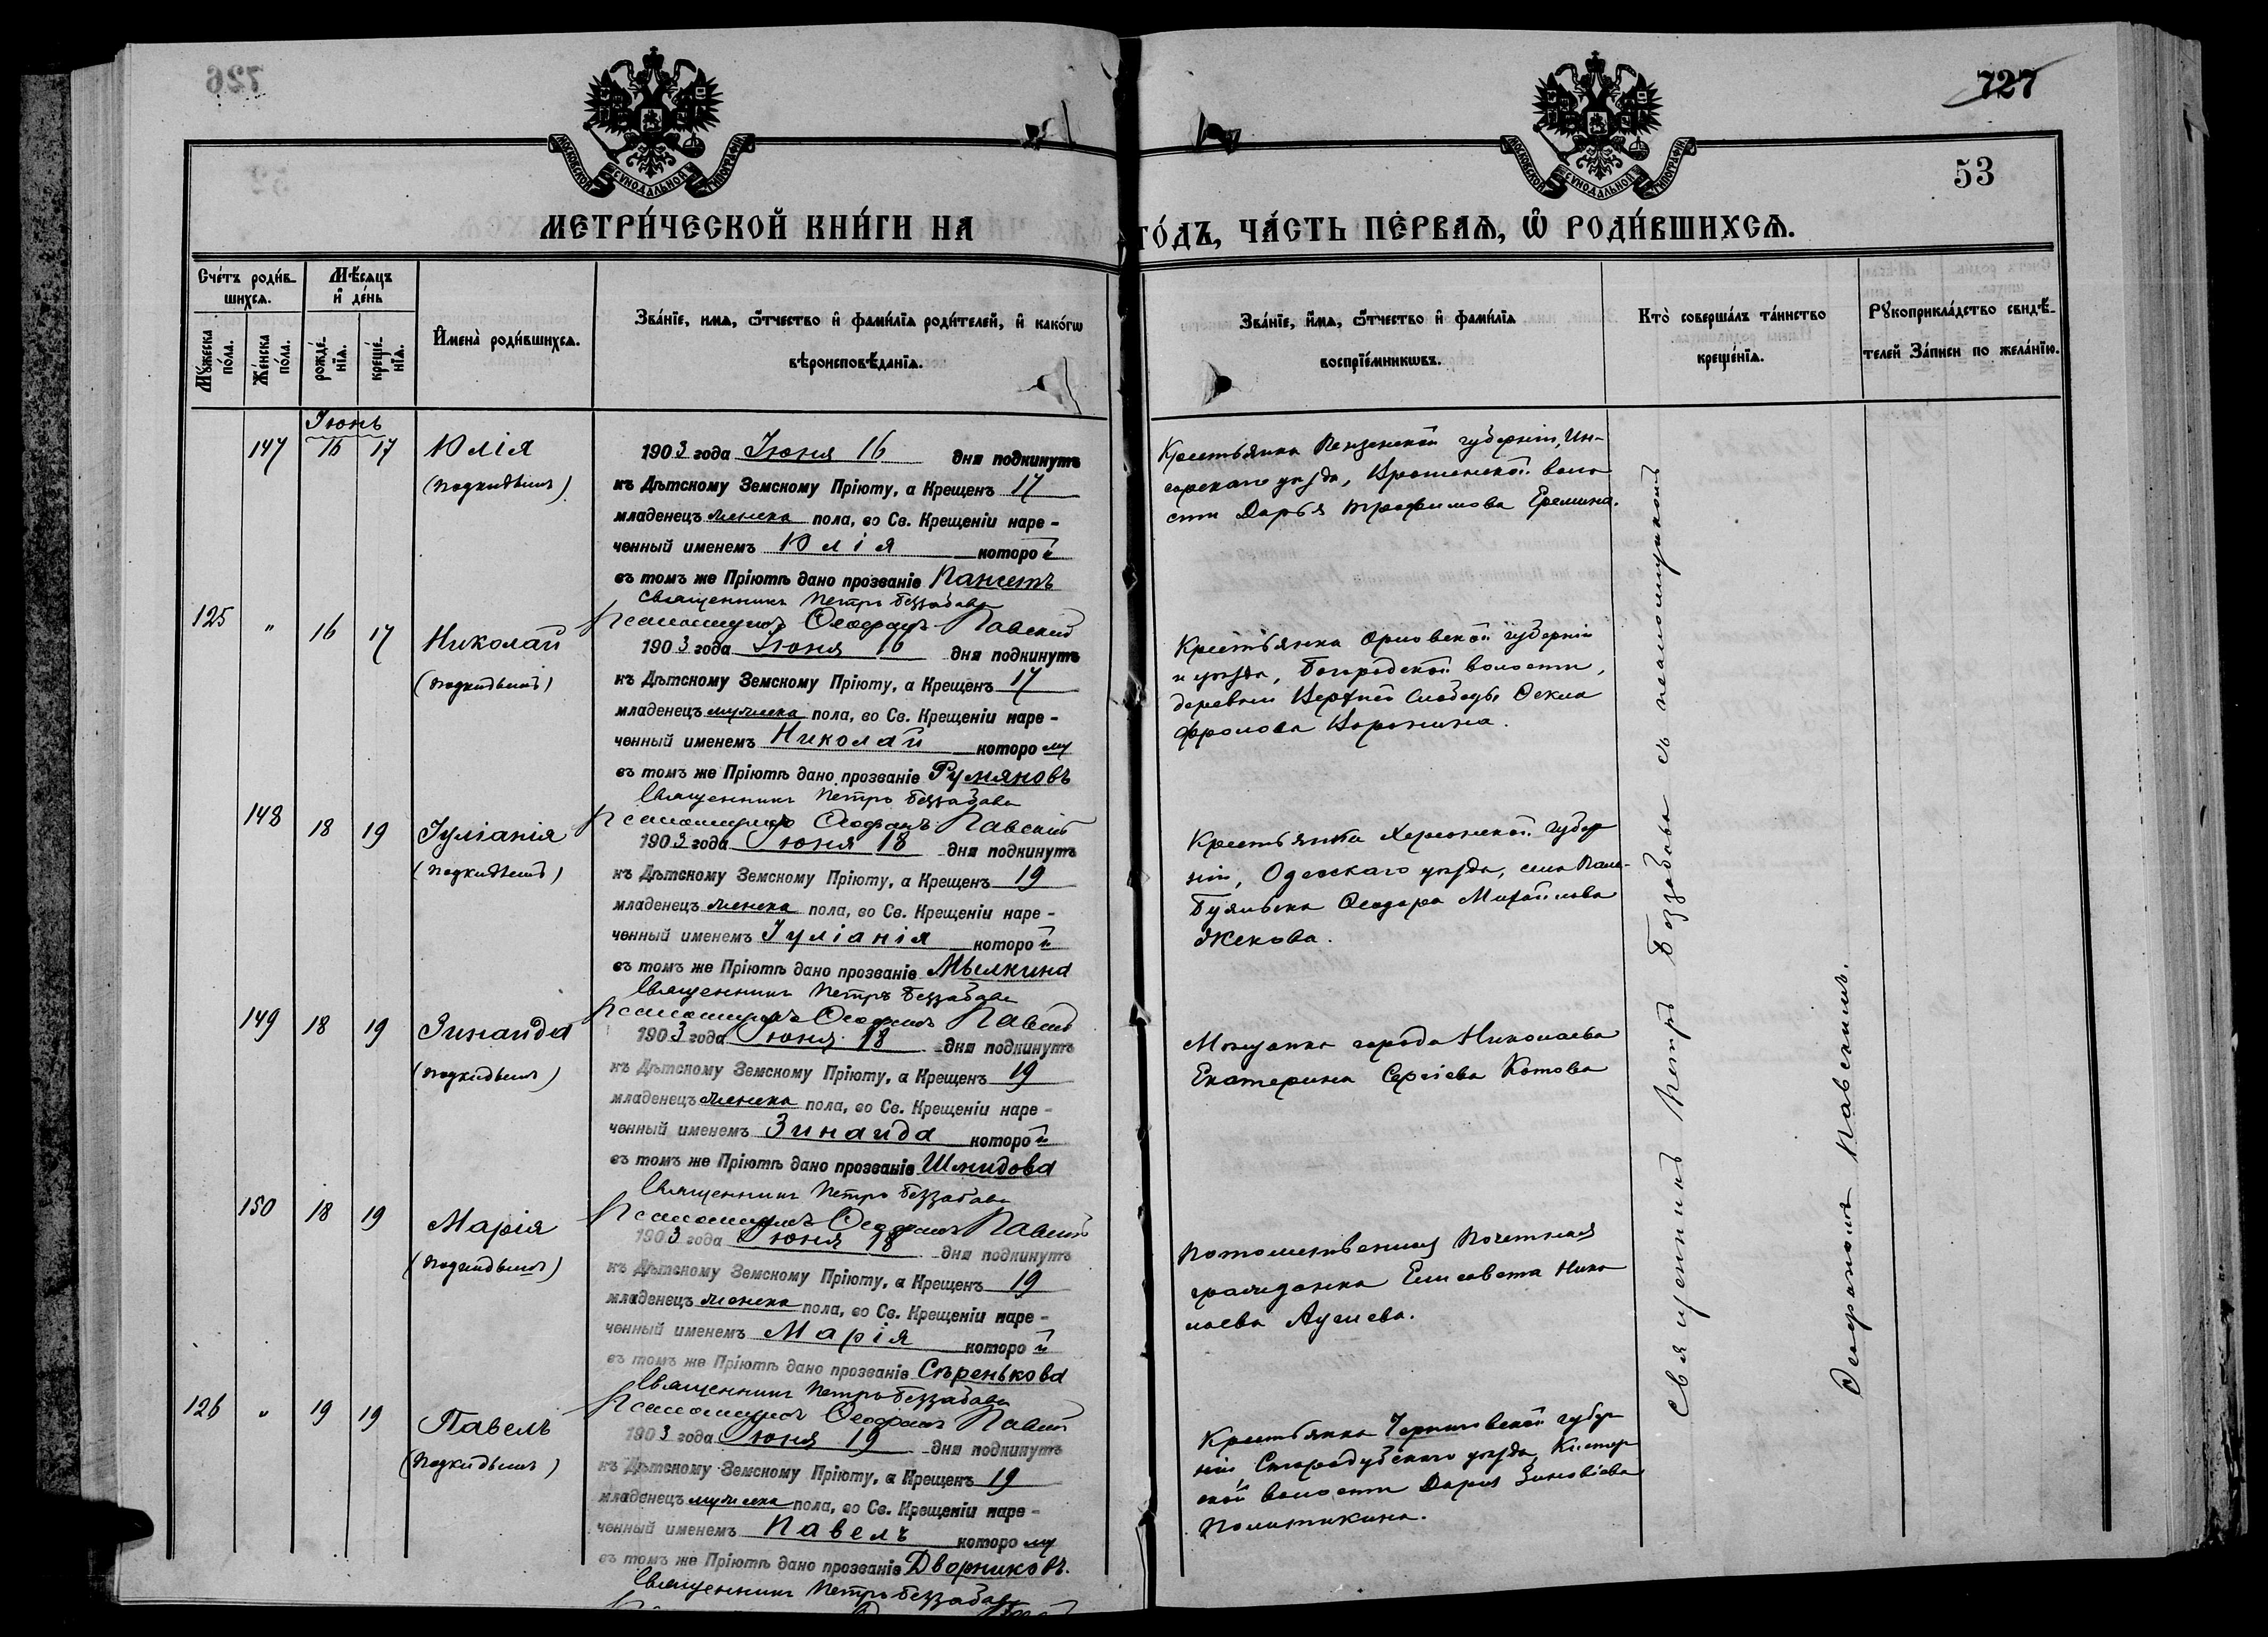 726
727
53
МОСКОВСКОЙ СѴНОДАЛЬНОЙ ТИПОГРАФІИ
МОСКОВСКОЙ СѴНОДАЛЬНОЙ ТИПОГРАФІИ
МЕТРИ́ЧЕСКОЙ КНИ́ГИ НА
ГО́ДЪ, ЧА́СТЬ ПЕ́РВАѦ, Ѡ҆ РОДИ́ВШИХСѦ.
Сче́тъ роди́в-
шихсѧ.
Мꙋ́жеска по́ла.
Же́нска по́ла.
Мѣ́сѧцъ
и҆ де́нь
рожде́-
нїѧ.
креще́-
нїѧ.
И҆мена̀ роди́вшихсѧ.
Зва́нїе, имѧ, ѻ҆́тчество и҆ фами́лїѧ роди́телей, и҆ како́гѡ
вѣроисповѣ́данїѧ.
Зва́нїе, и҆́мѧ, ѻ҆́тчество и҆ фами́лїѧ
воспрїе́мникѡвъ.
Кто̀ соверша́лъ та́инство
креще́нїѧ.
Рꙋкоприкла́дство свидѣ́-
телей За́писи по жела́нїю.
Іюнь
147 16 17 Юлія
(подкидышъ)
1903 года Іюня 16 дня подкинутъ
къ Дѣтскому Земскому Пріюту, а Крещенъ 17
младенецъ женска пола, во Св. Крещеніи наре-
ченный именемъ Юлія которой
въ томъ же Пріютѣ дано прозваніе
Священникъ Петръ Беззабава
Псаломщикъ Ѳеофанъ Павскій
Крестьянка Пензенской губерніи, Ин-
сарскаго уѣзда, воло-
сти Дарья Трофимова Еремина.
125 " 16 17 Николай
(подкидышъ)
1903 года Іюня 16 дня подкинутъ
къ Дѣтскому Земскому Пріюту, а Крещенъ 17
младенецъ мужеска пола, во Св. Крещеніи наре-
ченный именемъ Николай которому
въ томъ же Пріютѣ дано прозваніе Румяновъ
Священникъ Петръ Беззабава
Псаломщикъ Ѳеофанъ Павскій
Крестьянка Орловской губерніи
и уѣзда, Богородской волости,
деревни Верхней Слободы Ѳекла
Фролова Воронина.
148 18 19 Іуліанія
(подкидышъ)
1903 года Іюня 18 дня подкинутъ
къ Дѣтскому Земскому Пріюту, а Крещенъ 19
младенецъ женска пола, во Св. Крещеніи наре-
ченный именемъ Іуліанія которой
въ томъ же Пріютѣ дано прозваніе Мылкина
Священникъ Петръ Беззабава
Псаломщикъ Ѳеофанъ Павскій
Крестьянка Херсонской губер-
ніи, Одесскаго уѣзда, села
Буялыка Ѳеодора Михайлова
Жекова.
149 18 19 Зинаида
(подкидышъ)
1903 года Іюня 18 дня подкинутъ
къ Дѣтскому Земскому Пріюту, а Крещенъ 19
младенецъ женска пола, во Св. Крещеніи наре-
ченный именемъ Зинаида которой
въ томъ же Пріютѣ дано прозваніе Шмидова
Священникъ Петръ Беззабава
Псаломщикъ Ѳеофанъ Павскій
Мѣщанка города Николаева
Екатерина Сергіева Котова
150 18 19 Марія
(подкидышъ)
1903 года Іюня 18 дня подкинутъ
къ Дѣтскому Земскому Пріюту, а Крещенъ 19
младенецъ женска пола, во Св. Крещеніи наре-
ченный именемъ Марія которой
въ томъ же Пріютѣ дано прозваніе Сѣренькова
Священникъ Петръ Беззабава
Псаломщикъ Ѳеофанъ Павскій
Потомственная Почетная
гражданка Елисавета Нико-
лаева
126 " 19 19 Павелъ
(подкидышъ)
1903 года Іюня 19 дня подкинутъ
къ Дѣтскому Земскому Пріюту, а Крещенъ 19
младенецъ мужеска пола, во Св. Крещеніи наре-
ченный именемъ Павелъ которому
въ томъ же Пріютѣ дано прозваніе Дворниковъ.
Священникъ Петръ Беззабава
Крестьянка Черниговской губер-
ніи, Стародубскаго уѣзда,
ской волости Дарія Зиновіева
Политикина.
Священникъ Петръ Беззабава съ псаломщикомъ
Ѳеофаномъ Павскимъ.